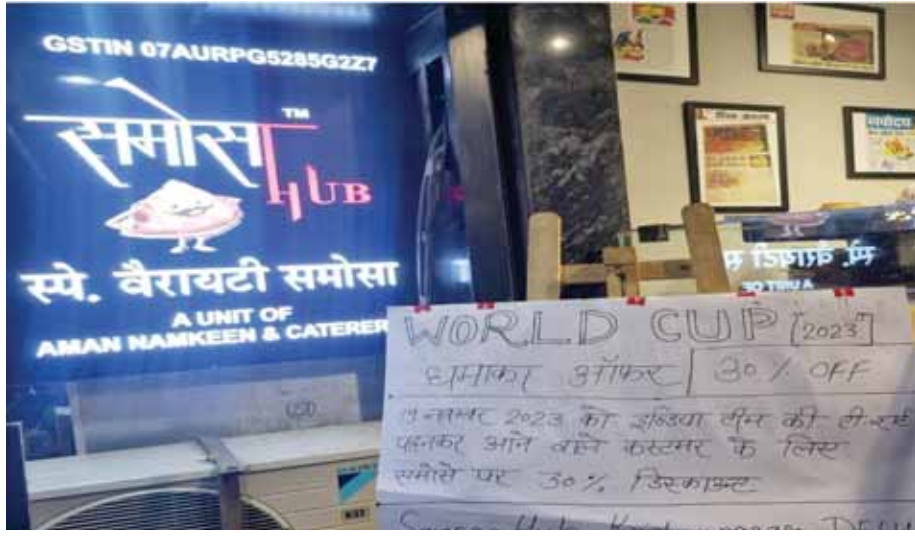 GSTIN 07AURPG5285G2Z7
समोसा HUB ™
स्पे. वैरायटी समोसा
A UNIT OF
AMAN NAMKEEN & CATERER
WORLD CUP [2023]
धमाका ऑफर | 30% OFF
19 नवम्बर 2023 को इन्डिया टीम की टी-शर्ट
पहनकर आने वाले कस्टमर के लिए
समोसे पर 30% डिस्काउन्ट
DELHI